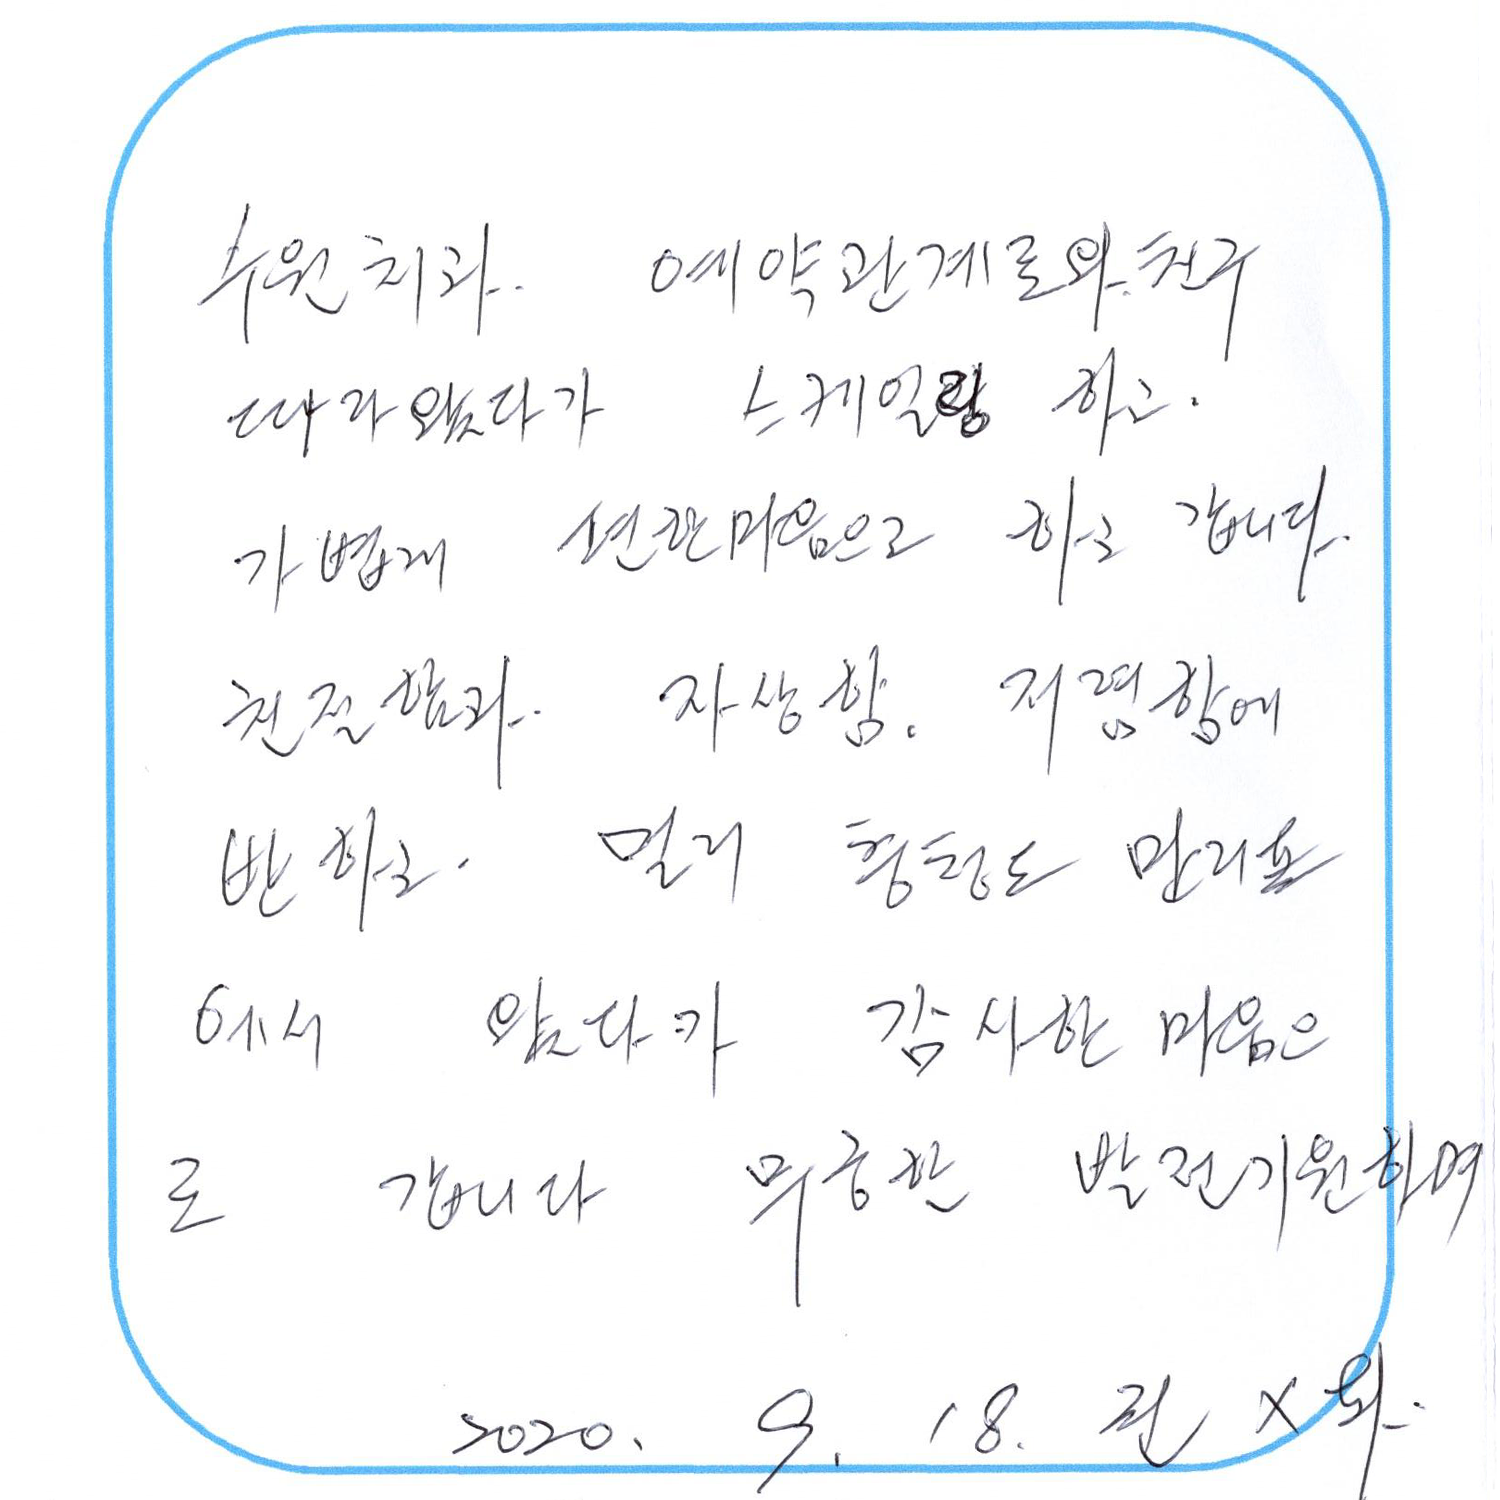 수원치과. 예약관계로와 친구
따라왔다가 스케일링 하고.
가볍게 션한마음으로 하고 갑니다.
친절함과. 자상함. 저렴함에
반하고. 멀리 만리포
에서 왔다가 감사한 마음으
로 갑니다 무궁한 발전기원하며
2020. 9. 18. 전 X 화.